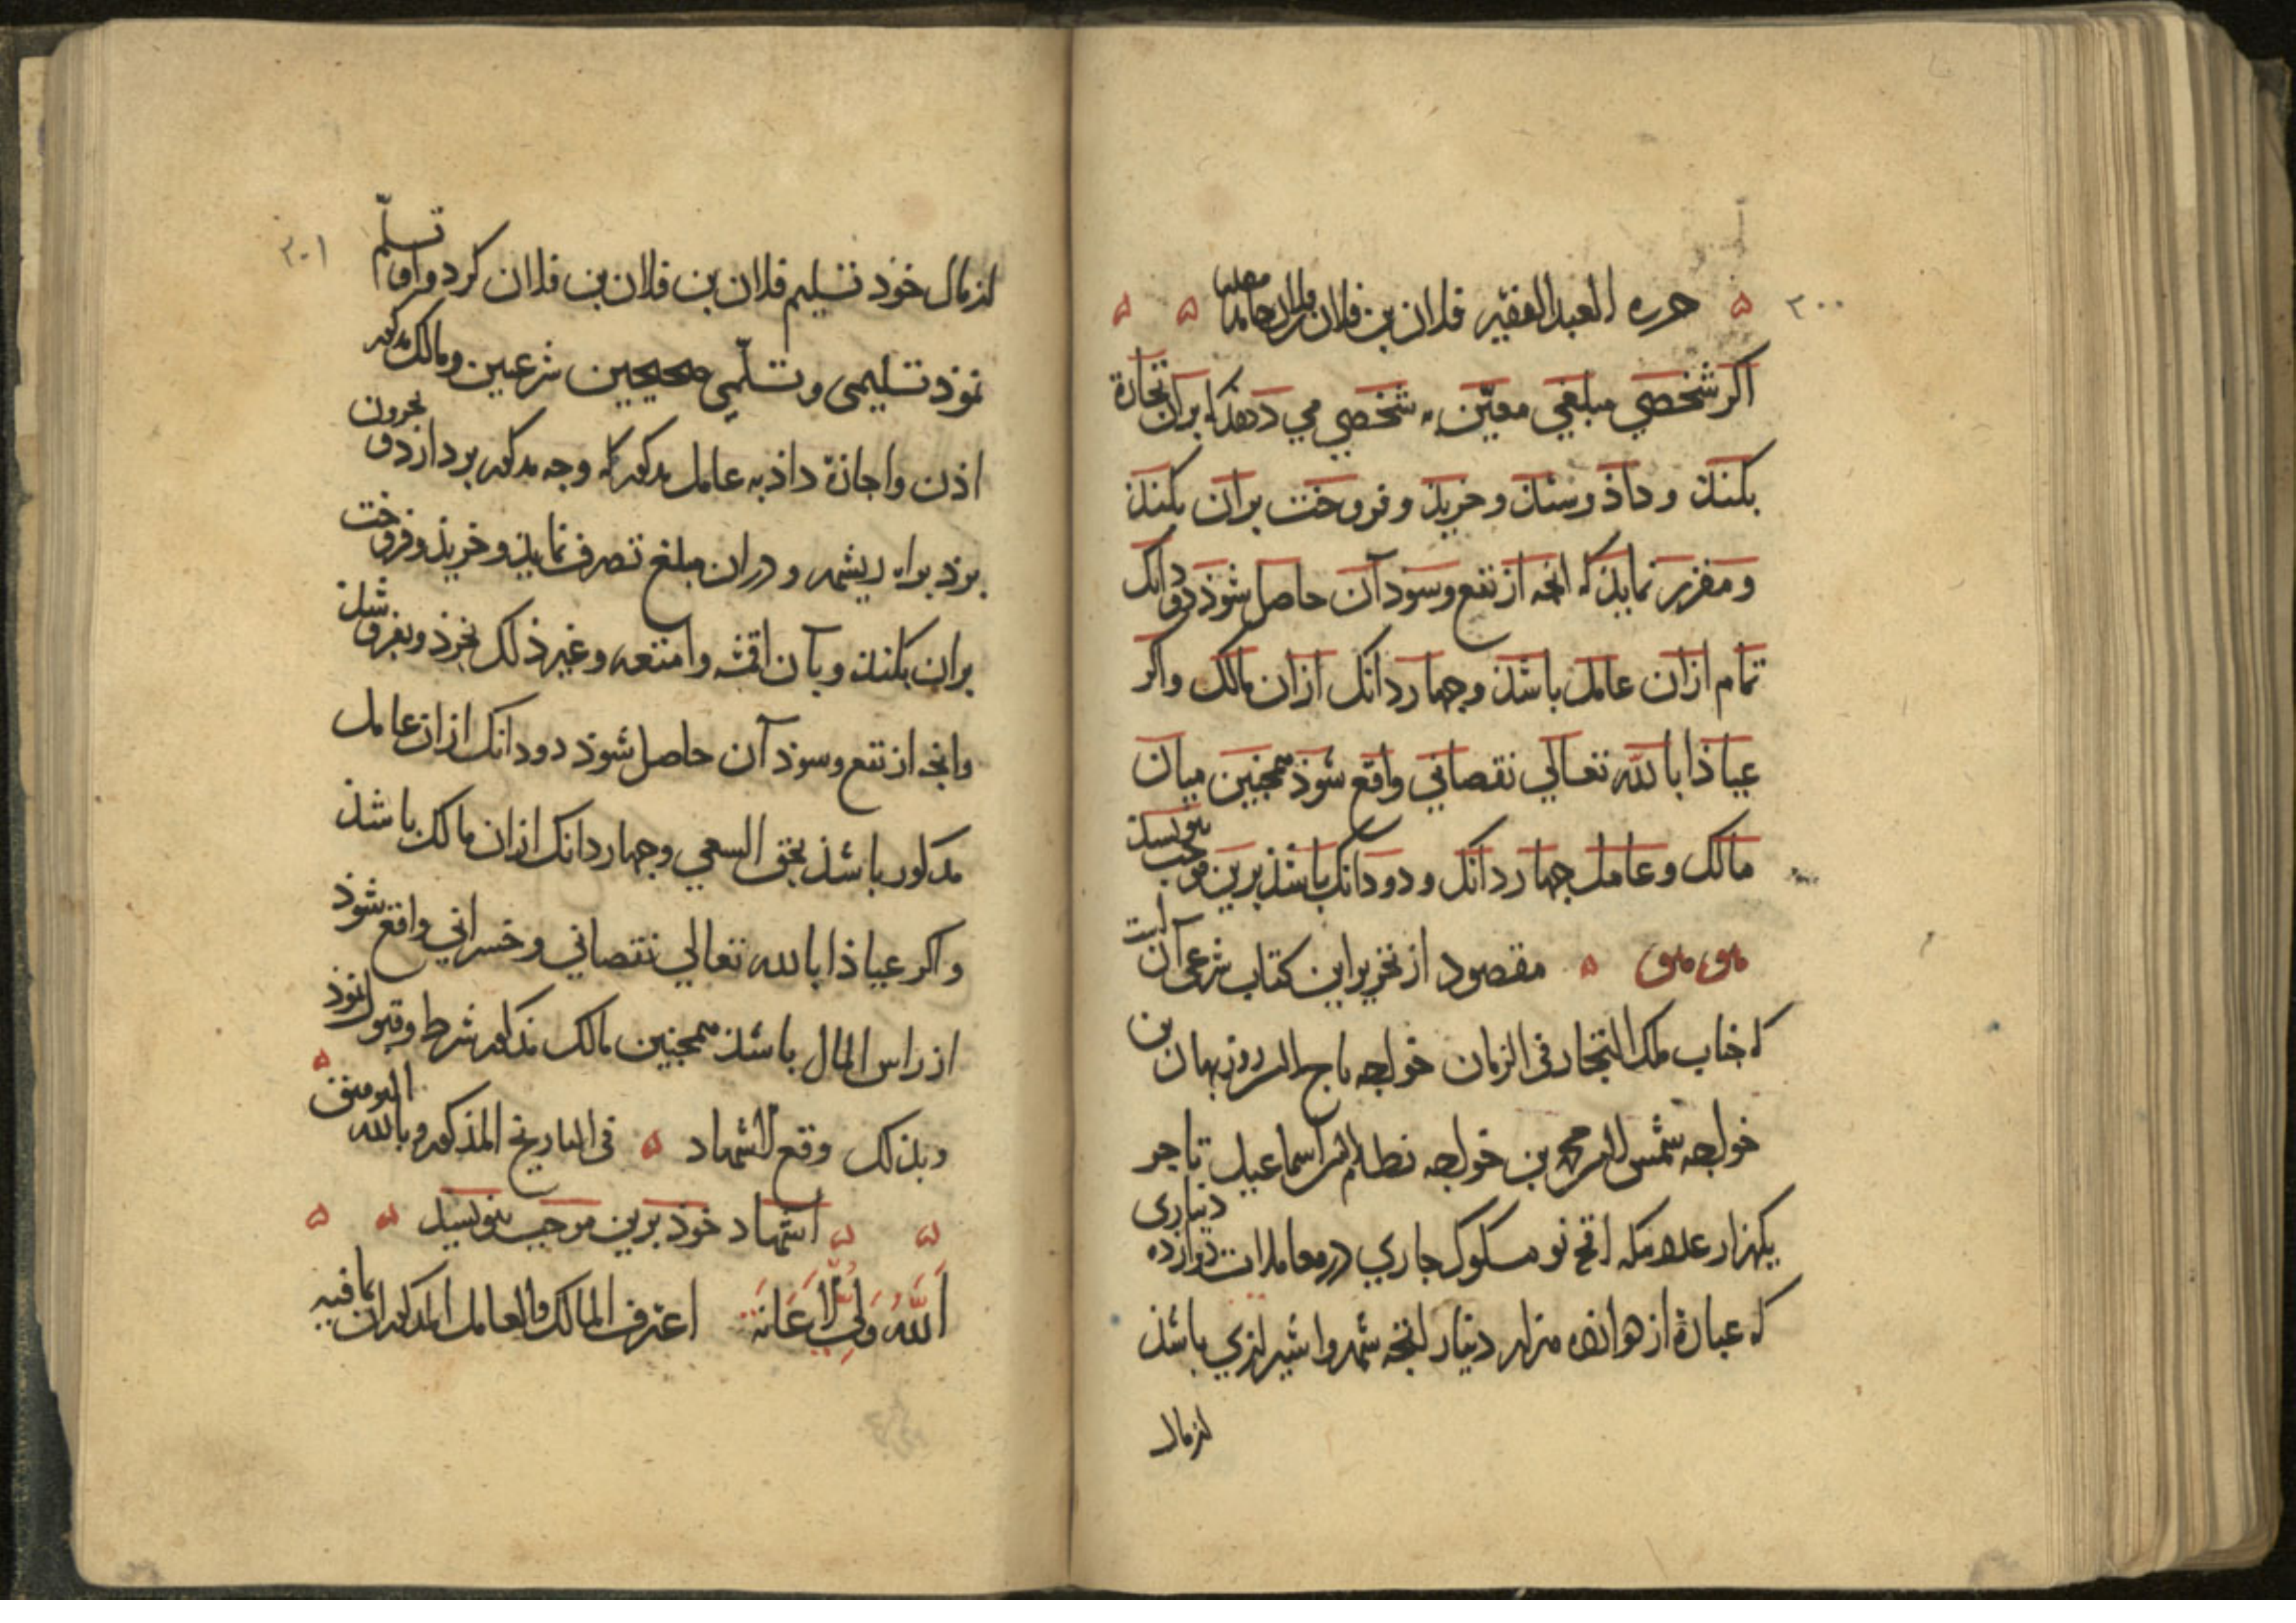 ۲۰۰
حرره العبد الفقیر فلان بن فلان بن فلان حامدا مصلیا
اکر شخصی مبلغی معیّن به شخصی می دهد که بران تجارة
بکنند و داذ وستان و خریذ و فروخت بران بکنند
و مقرر نمایذ که انچه از نفع و سود آن حاصل شوذ دو دانک
تمام ازان عامل باشذ و چهار دانک ازان مالک و اکر
عیاذا بالله تعالی نقصانی واقع شوذ همچنین میان
مالک و عامل چهار دانک و دو دانک باشذ برین موجب بنویسند
مقصود از تحریر این کتاب شرعی آن است
که جناب ملک التجار فی الزمان خواجه تاج الدین روزبهان بن
خواجه شمس الدین محمد بن خواجه نظام الدین اسماعیل تاجر
یکهزار عدد تنکه نو مسکوک جاری در معاملات دوازده دیناری
که عبارة از دوازده هزار دینار انجه شهروا شیرازی باشذ
از مال
۲۰۱
از مال خوذ تسلیم فلان بن فلان بن فلان کرد و او تسلّم
نموذ تسلیمی و تسلّمی صحیحین شرعیین و مالک مذکور
اذن و اجازة داذ به عامل مذکور که وجه مذکور بردارد و بجرون
برذ براه ریشهر و دران مبلغ تصرف نمایذ و خریذ و فروخت
بران بکنند و بآن اقمشه و امتعه و غیر ذلک بخرذ و بفروشد
وانچه از نفع و سوذ آن حاصل شوذ دو دانک ازان عامل
مذکور باشذ بحق السعی و چهار دانک ازان مالک باشذ
و اکر عیاذا بالله تعالی نقصانی و خسرانی واقع شوذ
از راس المال باشذ همچنین مالک مذکور شرط و قبول نموذ
وبذلک وقع الاشهاد فی التاریخ المذکور وبالله التوفیق
اشهاد خوذ برین موجب بنویسد
اَللّٰهُ وَلِیُّ الْاِعَانَةِ اعترف المالک والعامل المذکوران بما فیه